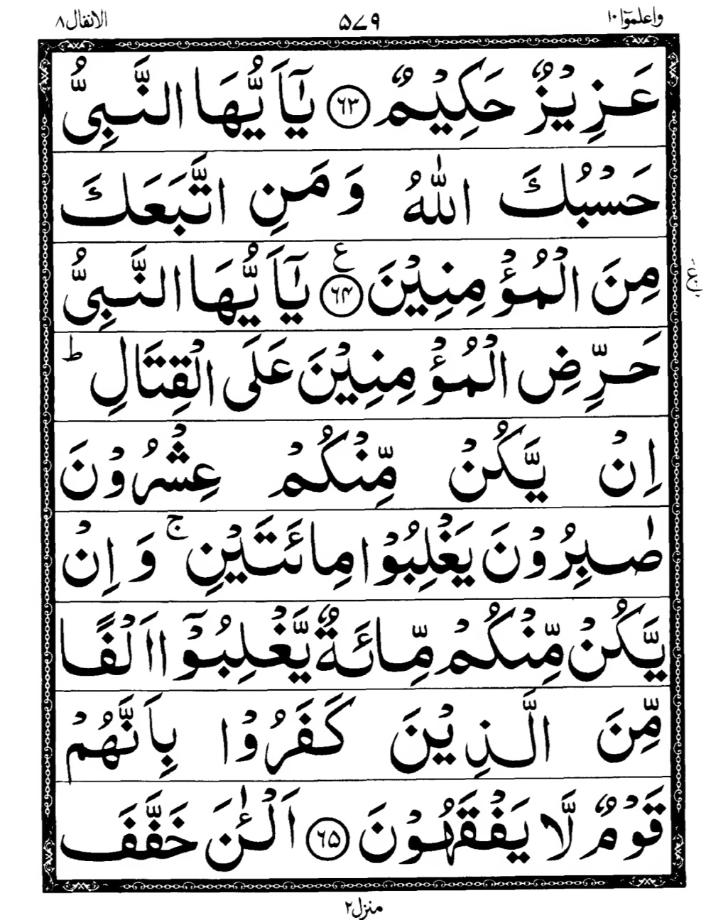 واعلموۤا ۱۰ ۵۷۹ الانفال ۸
عَزِيْزٌ حَكِيْمٌ ۶۳ يٰۤاَيُّهَا النَّبِىُّ
حَسْبُكَ اللّٰهُ وَمَنِ اتَّبَعَكَ
مِنَ الْمُؤْمِنِيْنَ ۶۴ ع يٰۤاَيُّهَا النَّبِىُّ
حَرِّضِ الْمُؤْمِنِيْنَ عَلَى الْقِتَالِ ؕ
اِنْ يَّكُنْ مِّنْكُمْ عِشْرُوْنَ
صٰبِرُوْنَ يَغْلِبُوْا مِائَتَيْنِ ۚ وَاِنْ
يَّكُنْ مِّنْكُمْ مِّائَةٌ يَّغْلِبُوْۤا اَلْفًا
مِّنَ الَّذِيْنَ كَفَرُوْا بِاَنَّهُمْ
قَوْمٌ لَّا يَفْقَهُوْنَ ۶۵ اَلْـٰٔنَ خَفَّفَ
منزل ۲